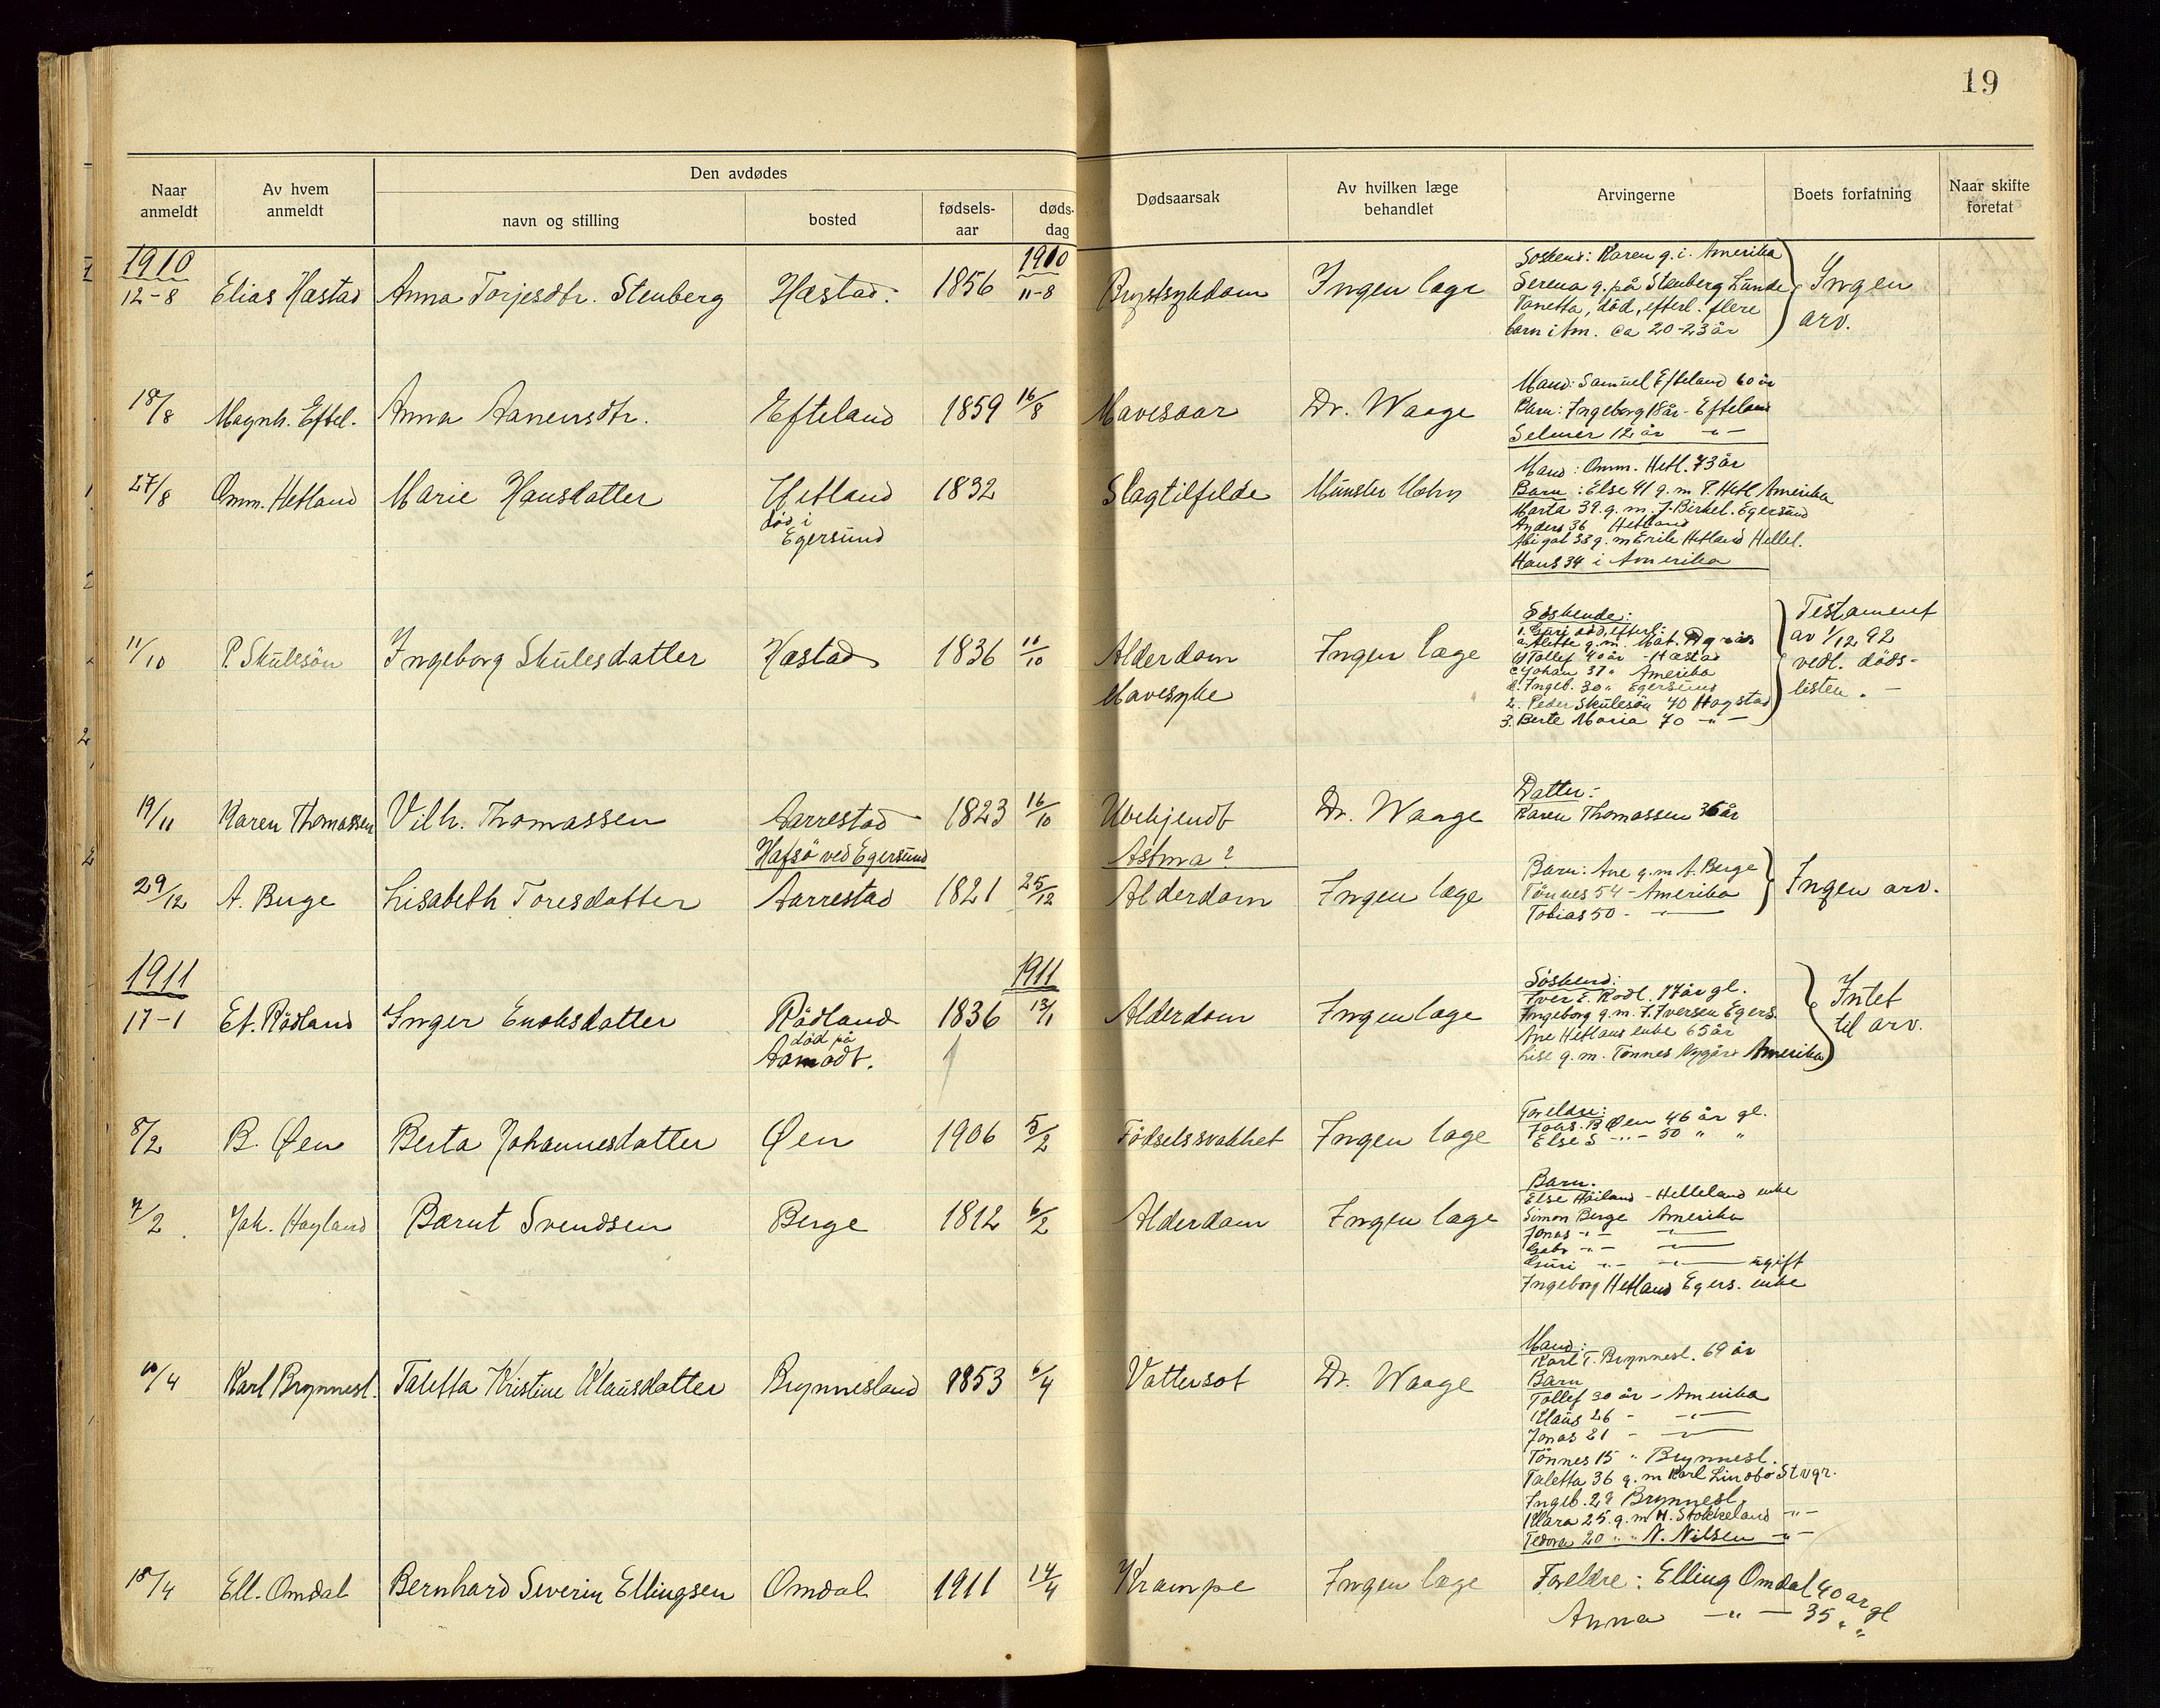 19
Naar anmeldt
Av hvem anmeldt
Den avdødes
navn og stilling
bosted
fødsels-aar
døds-dag
Dødsaarsak
Av hvilken læge behandlet
Arvingerne
Boets forfatning
Naar skifte foretat
1910
1910
12-8 Elias Hæstad Anna Torjesdtr. Stenberg Hæstad. 1856 11-8 Brystsykdom Ingen læge
Søskend: Karen g. i. Amerika
Serena g. på Stenberg Lunde
Tanetta, död, efterl. flere
barn i Am. ca 20-23 år
Ingen
arv.
18/8 Magnh. Eftel. Anna Aanensdtr. Efteland 1859 16/8 Mavesaar Dr. Waage
Mand: Samuel Efteland 60 år
Barn: Ingeborg 18 år - Efteland
Selmer 12 år -"-
27/8 Omm. Hetland Marie Hansdatter Hetland 1832 Slagtilfelde Munster Mohn
död i
Egersund
Mand: Omm. Hetl. 73 år
Barn: Else 41 g. m P. Hetl Amerika
Marta 39. g. m. J. Birkel. Egersund
Anders 36 Hetland
Abigal 33 g. m Erik Hetland Hellel.
Hans 34 i Amerika
11/10 P. Skulesön Ingeborg Skulesdatter Hæstad 1836 Alderdom Ingen læge
Mavesyke
Söskende:
1. Guri död, efterl:
a Alette g. m.
b) Tollef 40 år - Hæstad
c Johan 37 " Amerika
d. Ingeb. 30 " Egersund
2. Peder Skulesön 70 Hogstad
3. Berte Maria 70 -"-
Testament
av 1/12 92
vedl. döds-
listen. -
19/11 Karen Thomassen Vilh. Thomassen Aarrestad 1823 16/10 Ubekjendt Dr. Waage
Hafsö ved Egersund
Astma?
Datter:
Karen Thomassen 36 år
29/12 A. Berge Lisabeth Toresdatter Aarrestad 1821 25/12 Alderdom Ingen læge
Barn: Ane g. m A. Berge
Tönnes 54 - Amerika
Tobias 50 - -"-
Ingen arv.
1911
1911
17-1 Et. Rödland Inger Enoksdatter Rödland 1836 13/1 Alderdom Ingen læge
död på
Aamodt.
Söskend:
Iver E. Rodl. 77 år gl.
Ingeborg g. m. J. Iversen Egers.
Ane Hetland enke 65 år
Lise g. m. Tönnes Nygård Amerika
Intet
til arv.
8/2 B. Øen Berta Johannesdatter Øen 1906 5/2 Födselssvakhet Ingen læge
Foreldre:
Johs. B Øen 46 år gl.
Else S -"- 50 " "
7/2 Joh. Hayland Bærnt Svendsen Berge 1812 6/2 Alderdom Ingen læge
Barn.
Else Höiland - Helleland enke
Simon Berge Amerika
Jonas -"- -"-
Gabr -"- -"-
Guri -"- -"- ugift
Ingeborg Hetland Egers. enke
10/4 Karl Brynnesl. Taletta Kristine Klausdatter Brynnesland 1853 6/4 Vattersot Dr. Waage
Mand:
Karl T. Brynnesl. 69 år
Barn
Tollef 30 år - Amerika
Klaus 26 - -"-
Jonas 21 - -"-
Tönnes 15 " Brynnesl.
Taletta 36 g. m Karl Lindbo Stvgr.
Ingeb. 29 Brynnesl.
Klara 25. g. m H. Stokkeland -"-
Tedora 20 " " N. Nilsen -"-
18/4 Ell. Omdal Bernhard Severin Ellingsen Omdal 1911 14/4 Krampe Ingen læge
Foreldre: Elling Omdal 40 år gl
Anna -"- 35 " "